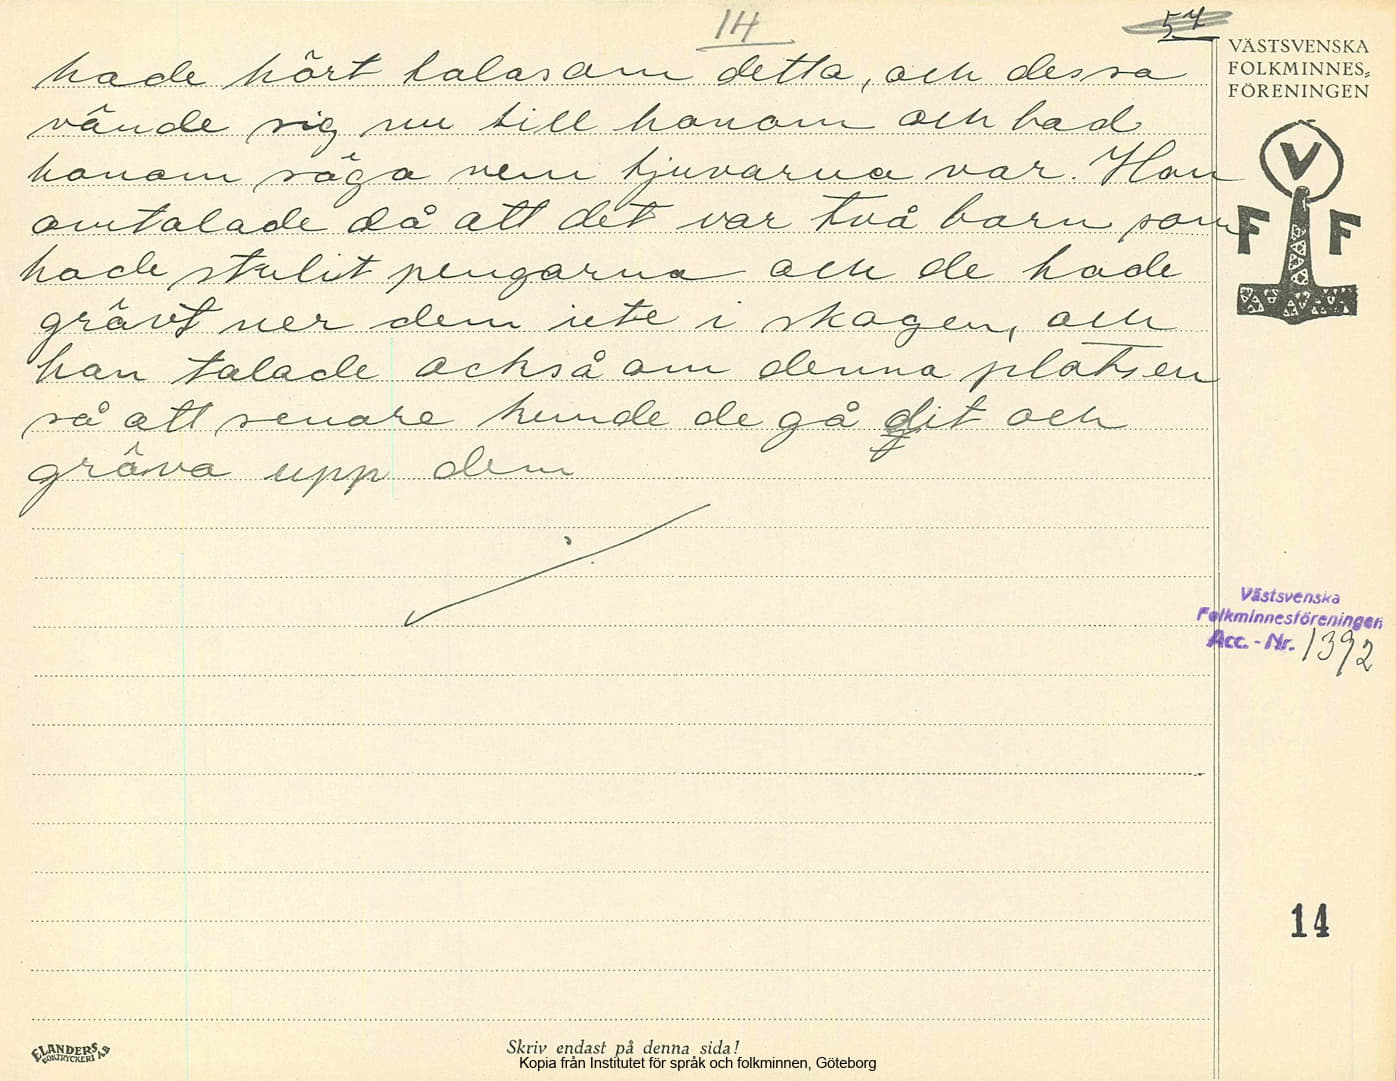 14
57
VÄSTSVENSKA
FOLKMINNES-
FÖRENINGEN
hade hört talas om detta, och dessa
vände sig nu till honom och bad
honom säga vem tjuvarna var. Han
omtalade då att det var två barn som
hade stulit pengarna och de hade
grävt ner dem ute i skogen, och
han talade också om denna platsen
så att senare kunde de gå dit och
gräva upp dem
V
F F
Västsvenska
Folkminnesföreningen
Acc. - Nr. 1392
14
ELANDERS
BOKTRYCKERI A.B
Skriv endast på denna sida!
Kopia från Institutet för språk och folkminnen, Göteborg